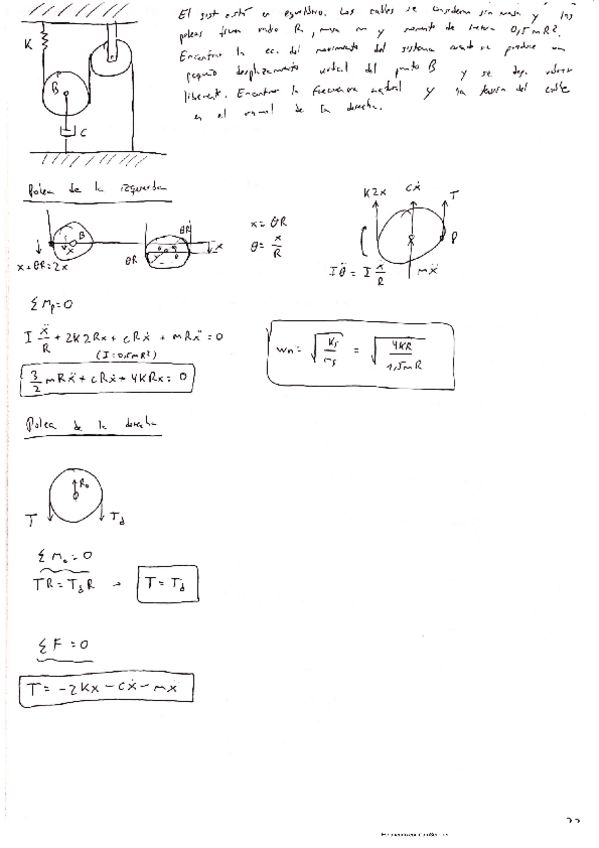 El sist está en equilibrio. Los cables se consideran sin masa y las
poleas tienen radio R, masa m y momento de inercia 0,5mR².
Encontrar la ec. del movimiento del sistema cuando se produce un
pequeño desplazamiento vertical del punto B y se deja
libremente. Encontrar la frecuencia natural y la tensión del cable
en el ramal de la derecha.
K
B
C
Polea de la izquierda
x = θR
θ = x/R
B
x
θR
θR
x
x + θR = 2x
K2x
cẋ
T
P
Iθ̈ = I ẍ/R
mẍ
ΣMp = 0
I ẍ/R + 2K2Rx + cRẋ + mRẍ = 0
(I = 0,5mR²)
3/2 mRẍ + cRẋ + 4KRx = 0
wn = √(Ks/ms) = √(4KR/1,5mR)
Polea de la derecha
R₀
T
Td
ΣM₀ = 0
TR = TdR → T = Td
ΣF = 0
T = -2Kx - cẋ - mẍ